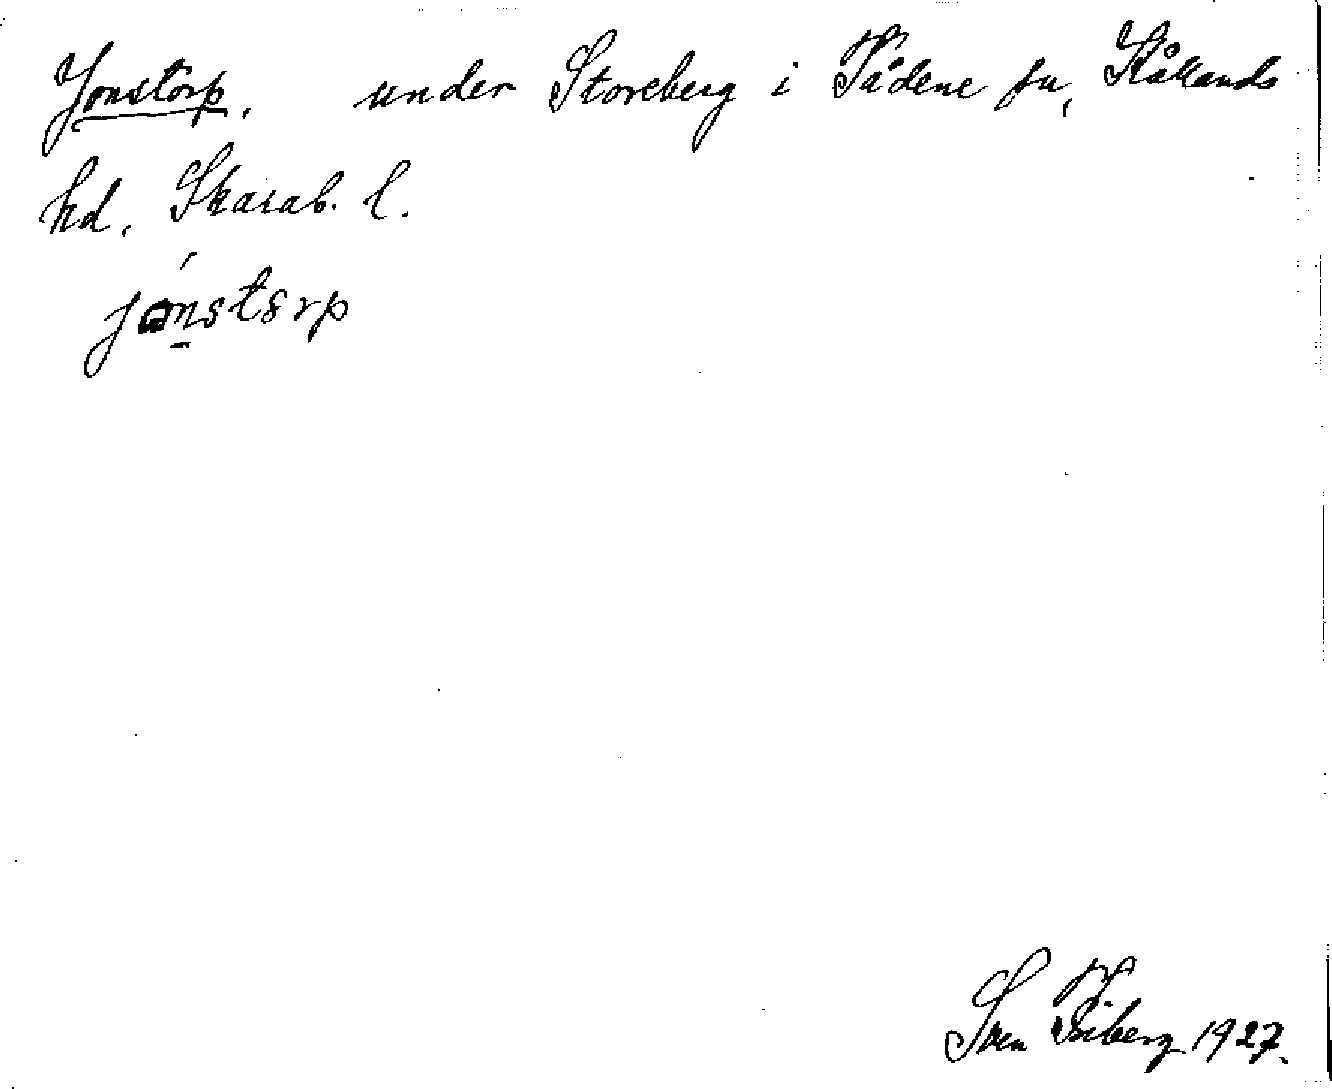 Jonstorp, under Storeberg i Tådene sn, Kållands
hd, Skarab. l.
jonstorp
Sven Fåberg 1927.